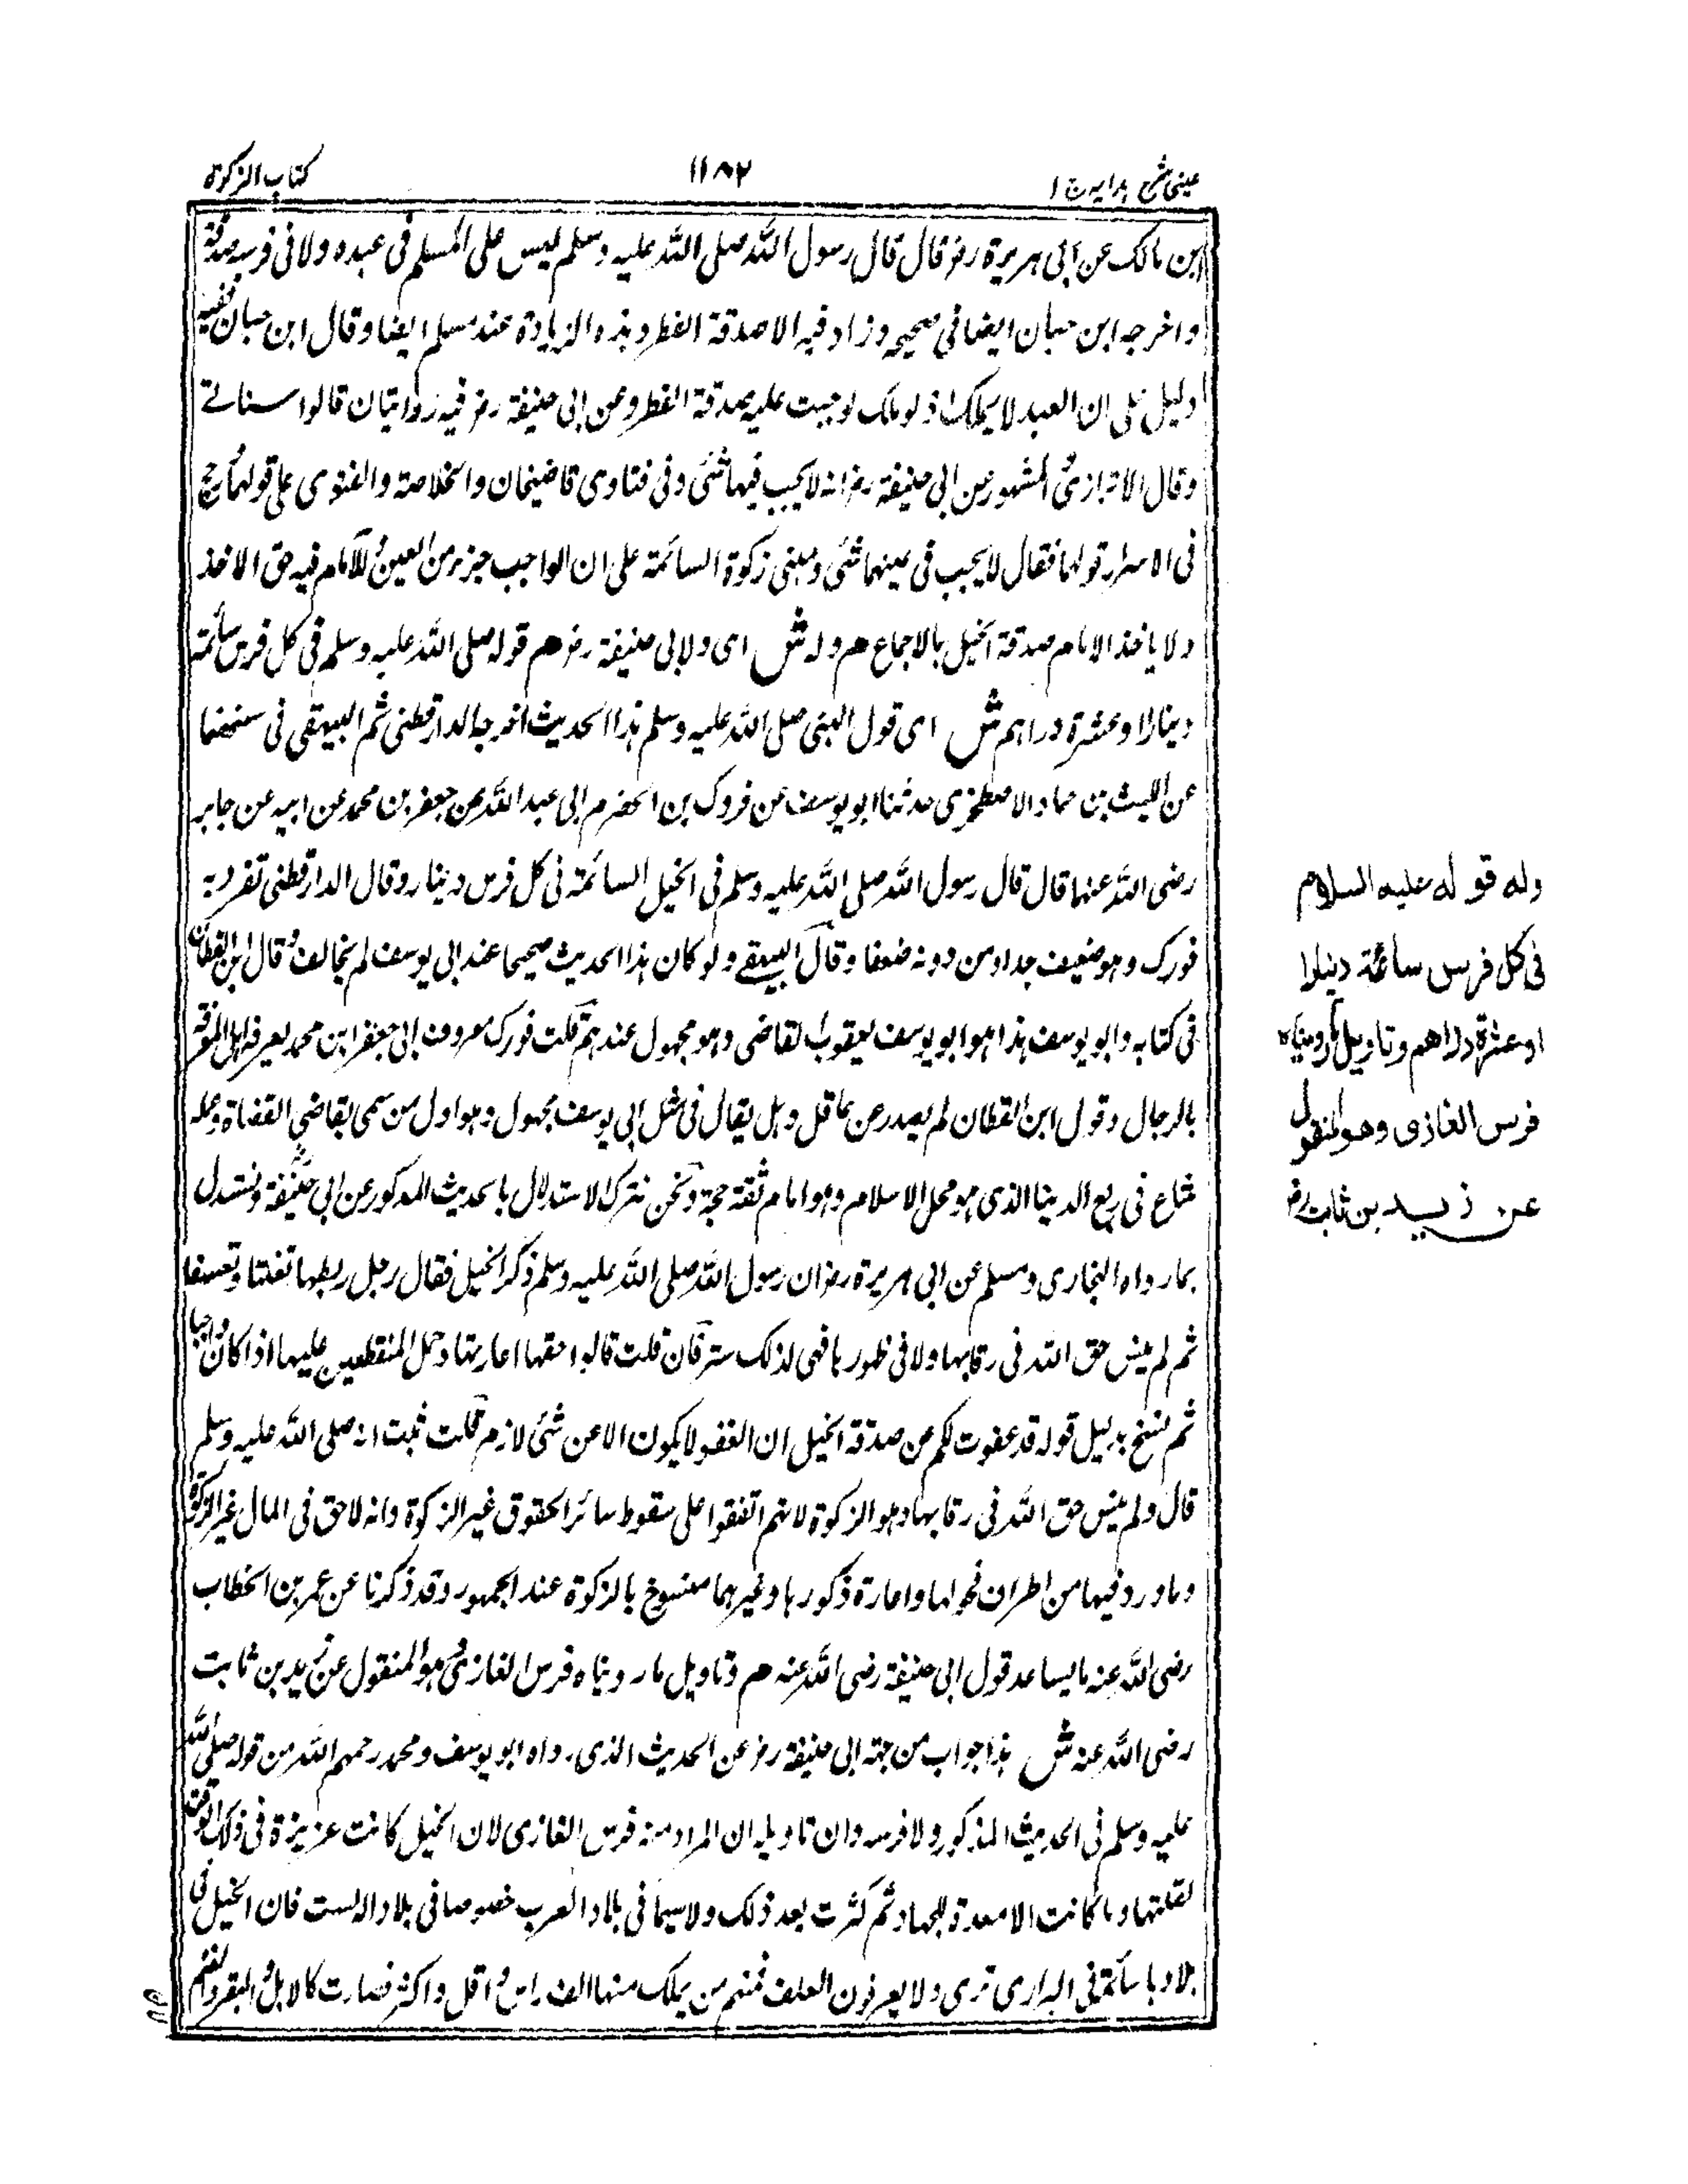 عینی شرح ہدایہ ج ۱
۱۱۸۲
كتاب الزكوة
ابن مالك عن ابى هريرة رض قال قال رسول الله صلى الله عليه وسلم ليس على المسلم فى عبده ولا فى فرسه صدقة
واخرجه ابن حبان ايضا فى صحيحه وزاد فيه الا صدقة الفطر وهذه الزيادة عند مسلم ايضا وقال ابن حبان فيه
دليل على ان العبد لا يملك اذ لو ملك لوجبت عليه صدقة الفطر وعن ابى حنيفة رض فيه روايتان قالوا
وقال الاترازى المشهور عن ابى حنيفة رض انه لا يجب فيها شئ وفى فتاوى قاضيخان والخلاصة والفتوى على قولهما رجح
فى الاسرار قولهما فقال لا يجب فى عينهما شئ ومبنى زكوة السائمة على ان الواجب جزء من العين وللامام فيه حق الاخذ
ولا ياخذ الامام صدقة الخيل بالاجماع هم وله ش اى ولابى حنيفة رض هم قوله صلى الله عليه وسلم فى كل فرس سائمة
دينارا وعشرة دراهم ش اى قول النبى صلى الله عليه وسلم هذا الحديث اخرجه الدارقطنى ثم البيهقى فى سننهما
عن الليث بن حماد الاصطخرى حدثنا ابو يوسف عن فورك بن الحضرم ابى عبد الله عن جعفر بن محمد عن ابيه عن جابر
رضى الله عنهما قال قال رسول الله صلى الله عليه وسلم فى الخيل السائمة فى كل فرس دينار وقال الدارقطنى تفرد به
فورك وهو ضعيف جدا ومن دونه ضعفا وقال البيهقى ولو كان هذا الحديث صحيحا عند ابى يوسف لم يخالفه وقال ابن القطان
فى كتابه وابو يوسف هذا هو ابو يوسف يعقوب القاضى وهو مجهول عندهم قلت فورك معروف ابى جعفر ابن محمد يعرفه اهل المعرفة
بالرجال وقول ابن القطان لم يصدر عن عاقل وهل يقال فى مثل ابى يوسف مجهول وهو اول من سمى بقاضى القضاة وعمله
شاع فى ربع الدينا الذى هو محل الاسلام وهو امام ثقة حجة ونحن نترك الاستدلال بالحديث المذكور عن ابى حنيفة ونستدل
بما رواه البخارى ومسلم عن ابى هريرة رض ان رسول الله صلى الله عليه وسلم ذكر الخيل فقال رجل ربطها تغنيا وتعففا
ثم لم ينس حق الله فى رقابها ولا فى ظهورها فهى لذلك ستر فان قلت قالوا حقها اعارتها وحمل المنقطعين عليها اذا كان واجبا
ثم نسخ بدليل قوله قد عفوت لكم عن صدقة الخيل ان العفو لا يكون الا عن شئ لازم قلت ثبت انه صلى الله عليه وسلم
قال ولم ينس حق الله فى رقابها وهو الزكوة لانهم اتفقوا على سقوط سائر الحقوق غير الزكوة وانه لا حق فى المال غير الزكوة
وما ورد فيها من اطراق فحولها واعارة ذكورها وغيرهما منسوخ بالزكوة عند الجمهور وقد ذكرنا عن عمر بن الخطاب
رضى الله عنه ما يساعد قول ابى حنيفة رضى الله عنه هم وتاويل ما رويناه فرس الغازى وهو المنقول عن زيد بن ثابت
رضى الله عنه ش هذا جواب من جهة ابى حنيفة رض عن الحديث الذى رواه ابو يوسف ومحمد رحمهم الله من قوله صلى الله
عليه وسلم فى الحديث المذكور ولا فرسه وان تاويله ان المراد منه فرس الغازى لان الخيل كانت عزيزة فى ذلك الوقت
لقلتها وما كانت الا معدة للجهاد ثم كثرت بعد ذلك ولا سيما فى بلاد العرب خصوصا فى بلاد الدست فان الخيل فى
بلادها سائمة فى البرارى ترى ولا يعرفون العلف فمنهم من يملك منها الف راس واقل واكثر فصارت كالابل والبقر والغنم
وله قوله عليه السلام
فى كل فرس سائمة دينارا
او عشرة دراهم وتاويل ما رويناه
فرس الغازى وهو المنقول
عن زيد بن ثابت رض